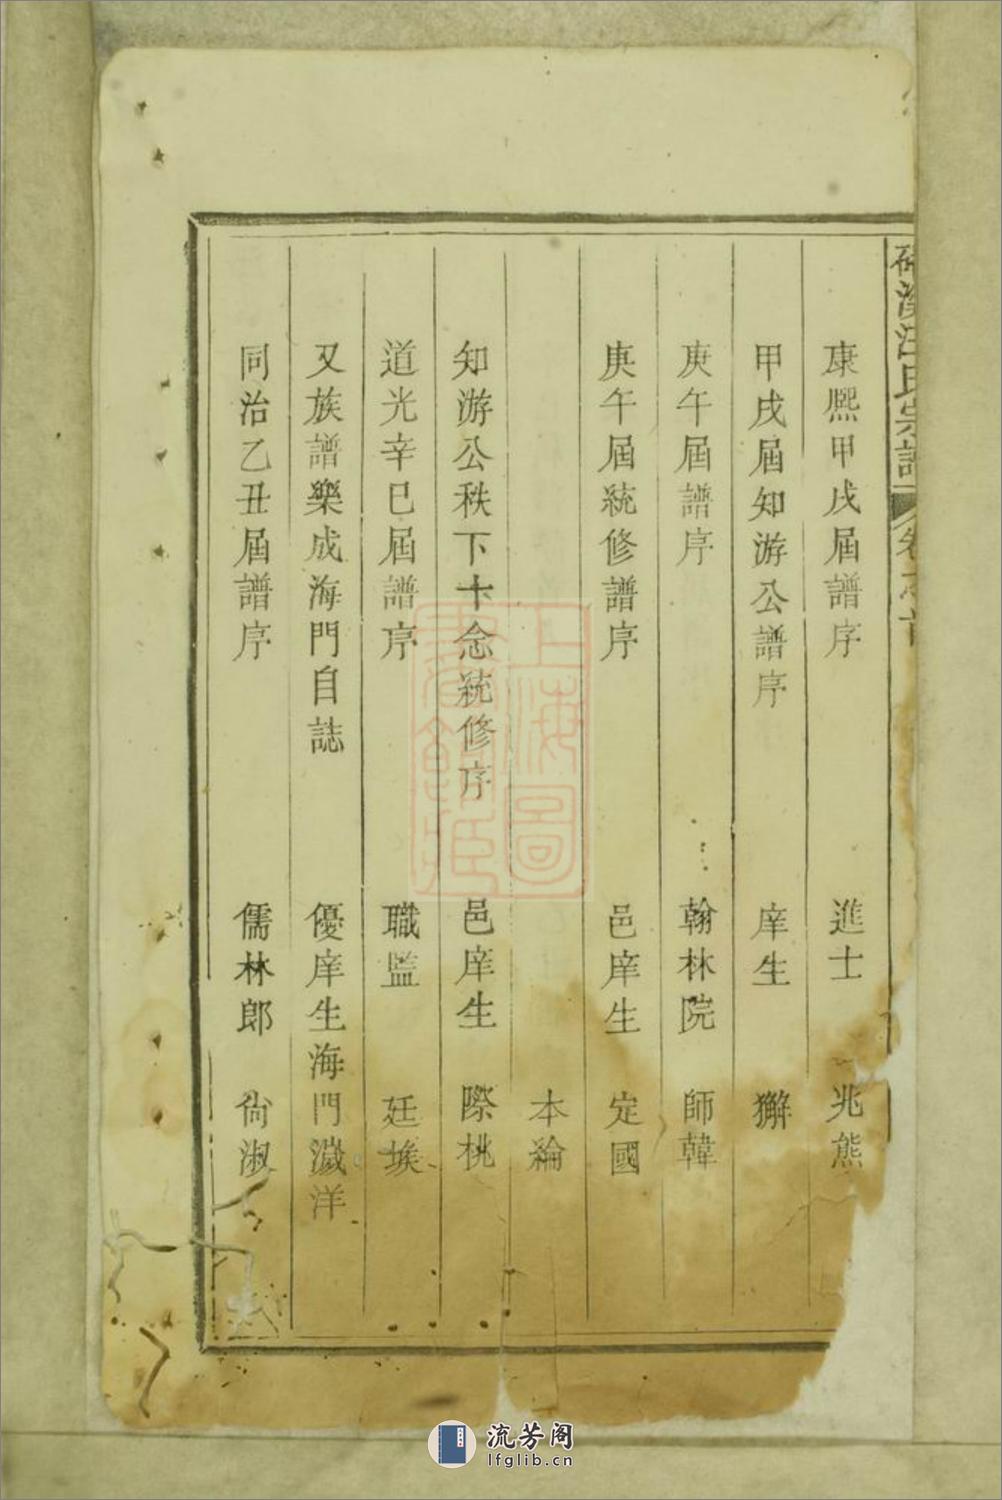 溪汪氏宗譜 卷之首
康熙甲戌屆譜序 進士 兆熊
甲戌屆知游公譜序 庠生 獬
庚午屆譜序 翰林院 師韓
庚午屆統修譜序 邑庠生 定國
本綸
知游公秩下十念統修序 邑庠生 際桃
道光辛巳屆譜序 職監 廷埃
又族譜樂成海門自誌 優庠生海門瀿洋
同治乙丑屆譜序 儒林郎 尙淑
上海圖書館藏
流芳阁
lfglib.cn